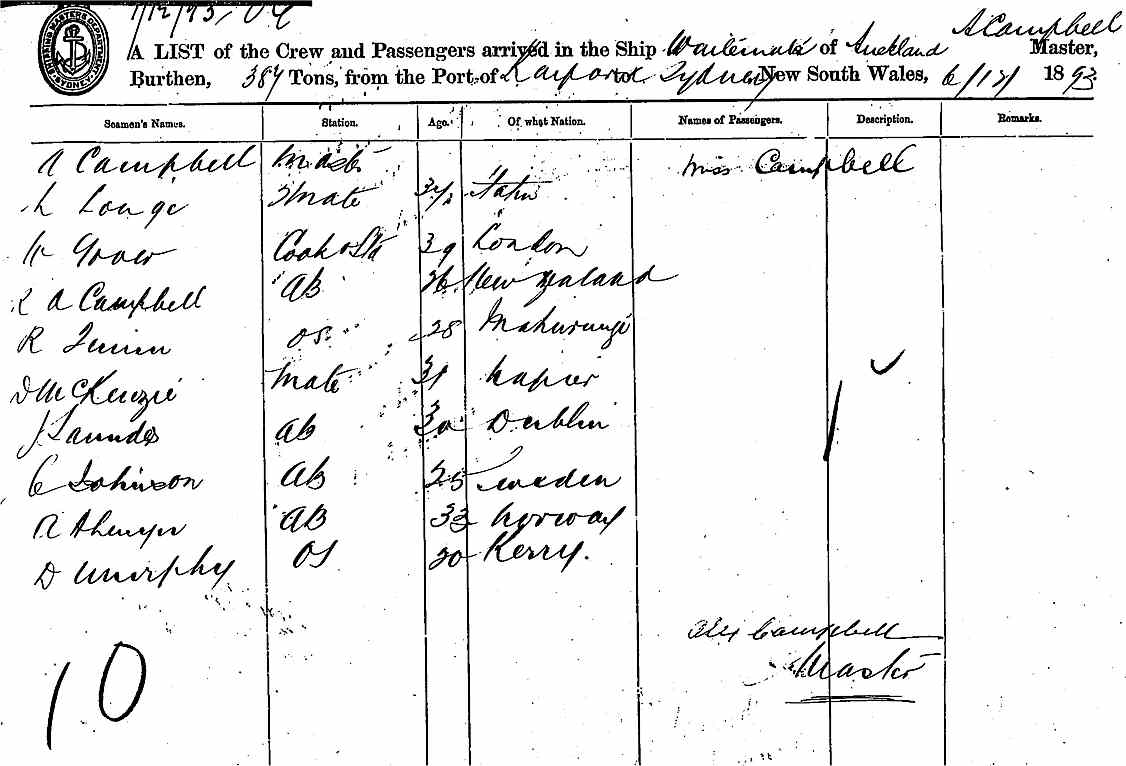 7/12/93
A LIST of the Crew and Passengers arrived in the Ship Waitemata of Auckland A Campbell Master,
Burthen, 387 Tons, from the Port of Kaipara to Sydney New South Wales, 6/12/ 1893
Seamen's Names. Station. Age. Of what Nation. Names of Passengers. Description. Remarks.
A Campbell Master Miss Campbell
Mate
Cook & Std 39 London
R A Campbell AB 26 New Zealand
R OS 28 Mahurangi
D McKenzie Mate 31 Napier
J Saunders AB 30 Dublin
C Johnson AB 25 Sweden
AB 33 Norway
D Murphy OS 20 Kerry.
Alex Campbell
Master
10